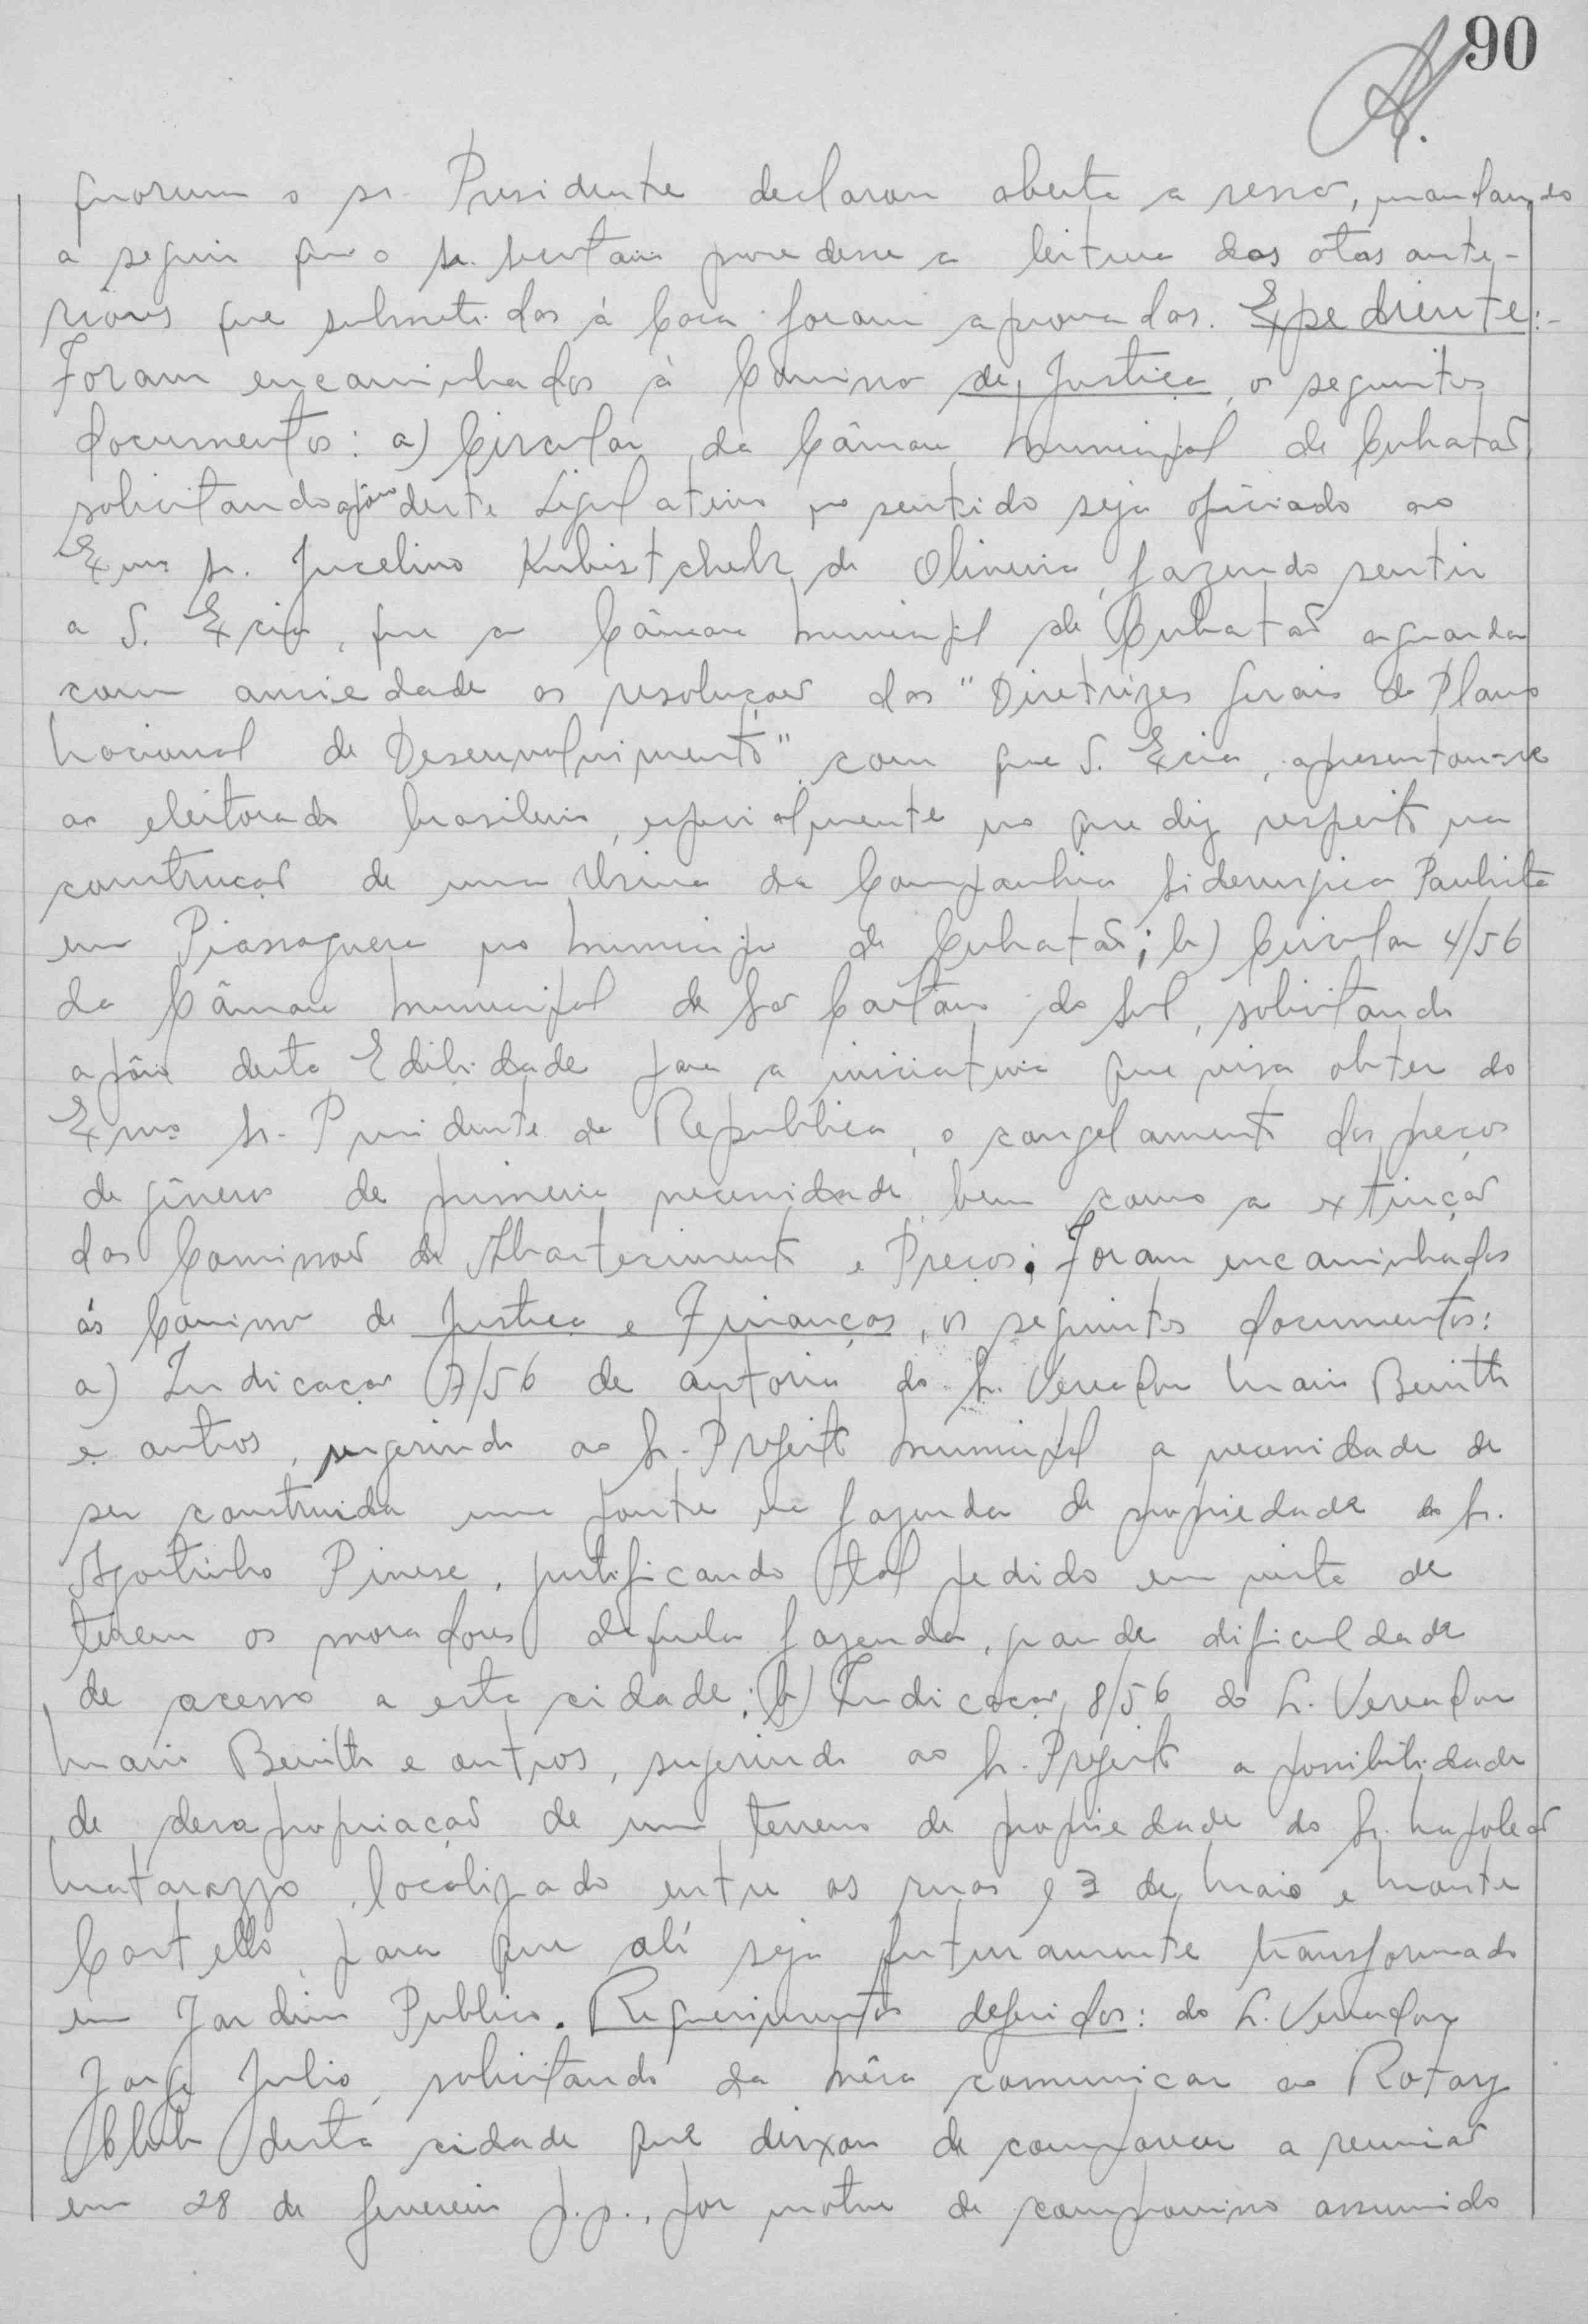 90
quorum o sr. Presidente declarou aberta a sessão, mandando
a seguir que o sr. secretário procedesse a leitura das atas ante-
riores que submetidas à Casa foram aprovadas. Expediente:-
Foram encaminhados à Comissão de Justiça, os seguintes
documentos: a) Circular da Câmara Municipal de Cubatão
solicitando apôio deste Legislativo no sentido seja oficiado ao
Exmo sr. Jucelino Kubistchek de Oliveira, fazendo sentir
a S. Excia, que a Câmara Municipal de Cubatão aguarda
com ansiedade as resoluções das "Diretrizes Gerais do Plano
Nacional de Desenvolvimento" com que S. Excia, apresentou-se
ao eleitorado brasileiro, especialmente no que diz respeito na
construção de uma Usina da Companhia Siderurgica Paulista
em Piassaguera no Municipio de Cubatão; b) Circular 4/56
da Câmara Municipal de São Caetano do Sul, solicitando
apôio desta Edilidade para a iniciativa que visa obter do
Exmo Sr. Presidente da Republica, o congelamento dos preços
de gêneros de primeira necessidade, bem como a extinção
das Comissões de Abastecimento e Preços; Foram encaminhados
ás Comissão de Justiça e Finanças, os seguintes documentos:
a) Indicação 7/56 de autoria do Sr. Vereador Mario Benith
e outros, sugerindo ao Sr. Prefeito Municipal a necessidade de
ser construida uma ponte na fazenda de propriedade do Sr.
Agostinho Pinese, justificando tal pedido em vista de
terem os moradores daquela fazenda, grande dificuldade
de acesso a esta cidade; b) Indicação 8/56 do Sr. Vereador
Mario Benith e outros, sugerindo ao Sr. Prefeito a possibilidade
de desapropriação de um terreno de propriedade do Sr. Napoleão
Matarazzo, localizado entre as ruas 13 de Maio e Monte
Castello, para que alí seja futuramente transformado
em Jardim Publico. Requerimentos deferidos: do Sr. Vereador
Jorge Julio, solicitando da Mêsa comunicar ao Rotary
Club desta cidade que deixou de comparecer a reunião
em 28 de fevereiro p.p., por motivo de compromisso assumido